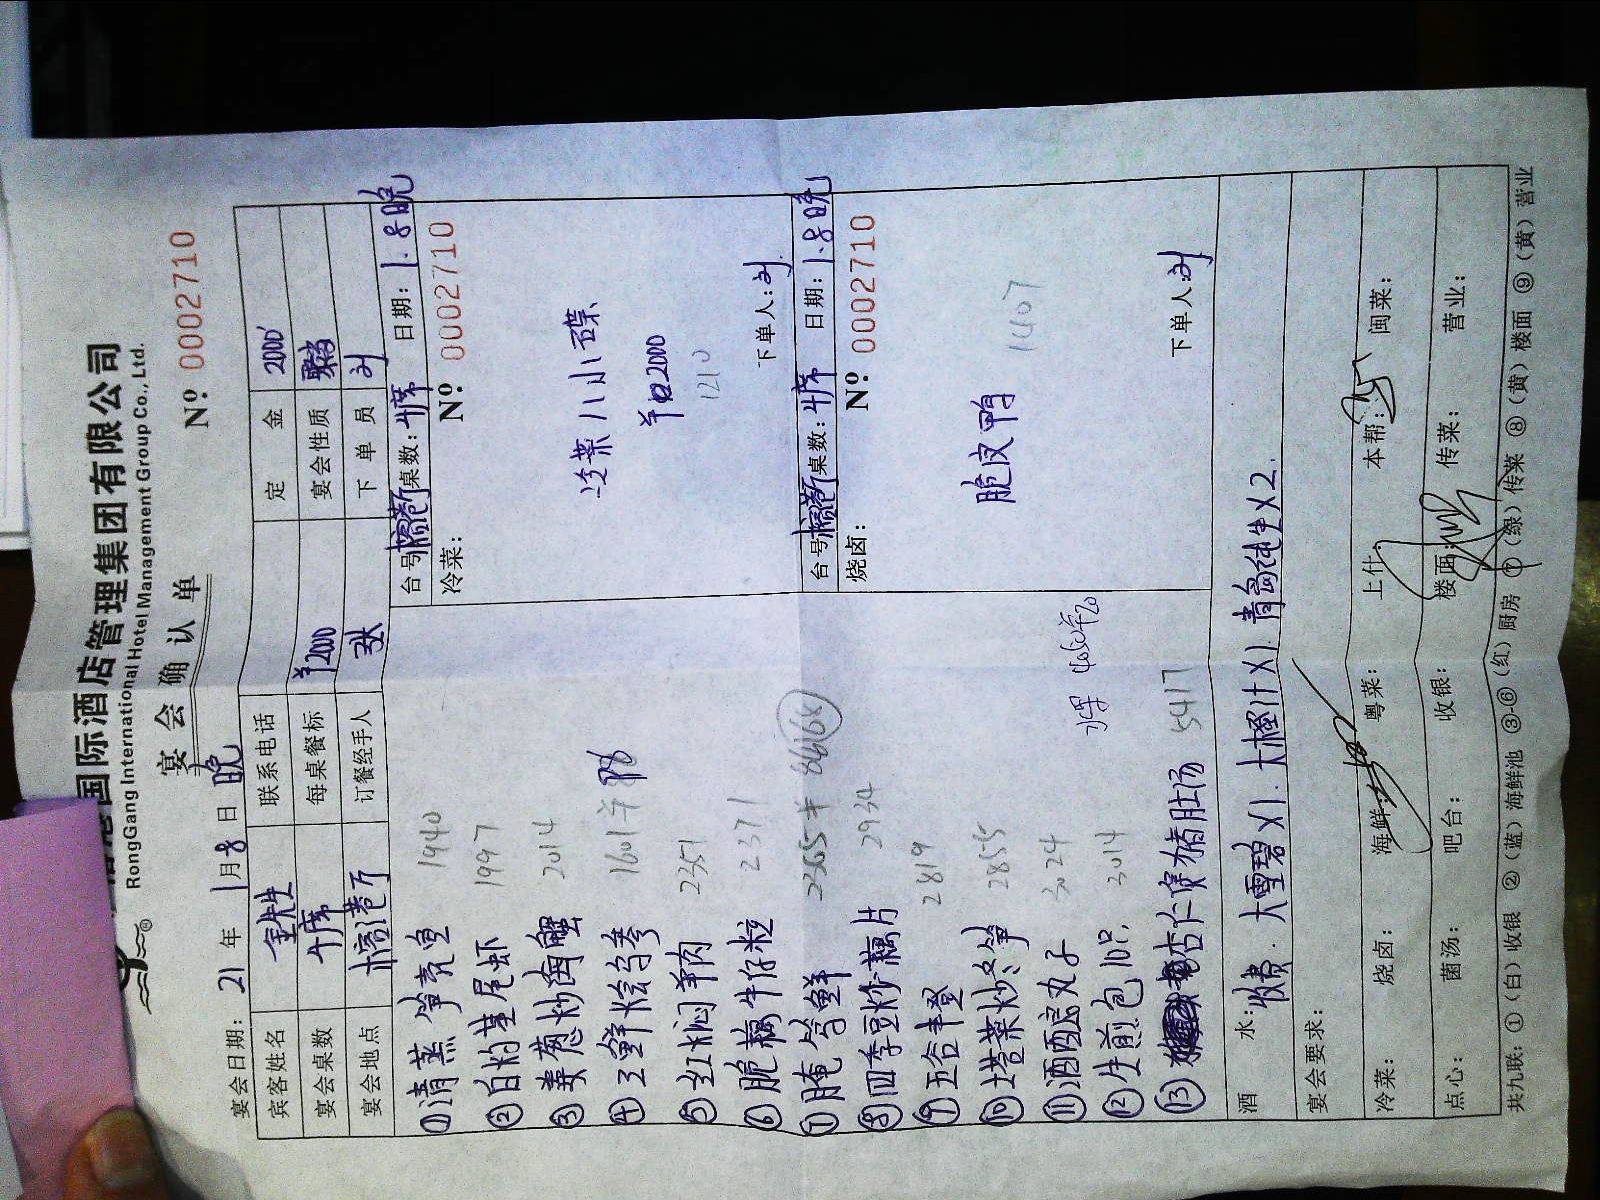 国际酒店管理集团有限公司
RongGang International Hotel Management Group Co., Ltd.
宴会确认单
Nº 0002710
宴会日期: 21 年 1 月 8 日 晚
宾客姓名 联系电话 定金 2000
宴会桌数 4席 每桌餐标 ¥2000 宴会性质
宴会地点 榕港厅 订餐经手人 张 下单员 刘
①清蒸笋壳鱼 1940
②白灼基尾虾 1997
③姜葱炒肉蟹 2014
④三鲜烩乌参 1601
⑤红焖羊肉 2351
⑥脆藕牛仔粒 2371
⑦腌笃鲜 2365
⑧四季豆炒藕片 2934
⑨五谷丰登 2819
⑩塔菜炒冬笋 2855
⑪酒酿丸子 3024
⑫生煎包10只 3014
⑬杏仁煲猪肚汤 5417
水果
台号 桌数: 4席 日期: 1.8晚
冷菜: Nº 0002710
冷菜八小碟
2000
1210
下单人: 刘
台号 桌数: 4席 日期: 1.8晚
烧卤: Nº 0002710
脆皮鸭 1407
下单人: 刘
酒水: 收费. 大雪碧X1. 大橙汁X1. 青岛纯生X2.
宴会要求:
冷菜: 烧卤: 海鲜: 粤菜: 上什: 本帮: 闽菜:
点心: 菌汤: 吧台: 收银: 楼面: 传菜: 营业:
共九联: ①(白)收银 ②(蓝)海鲜池 ③-⑥(红)厨房 ⑦(绿)传菜 ⑧(黄)楼面 ⑨(黄)营业